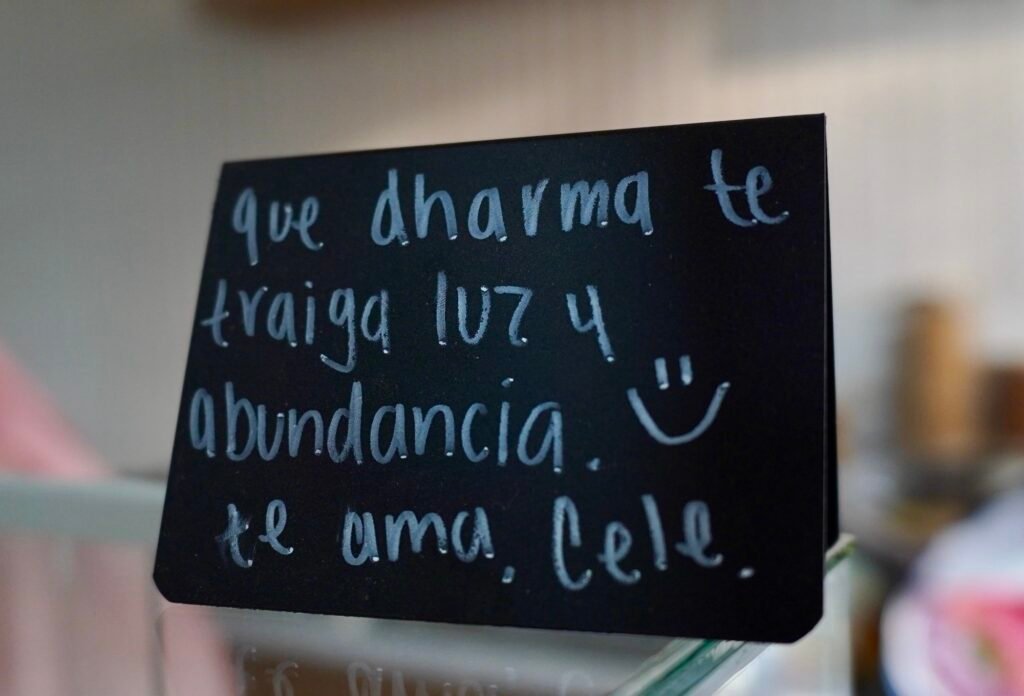 que dharma te
traiga luz y
abundancia.
te ama, Cele.